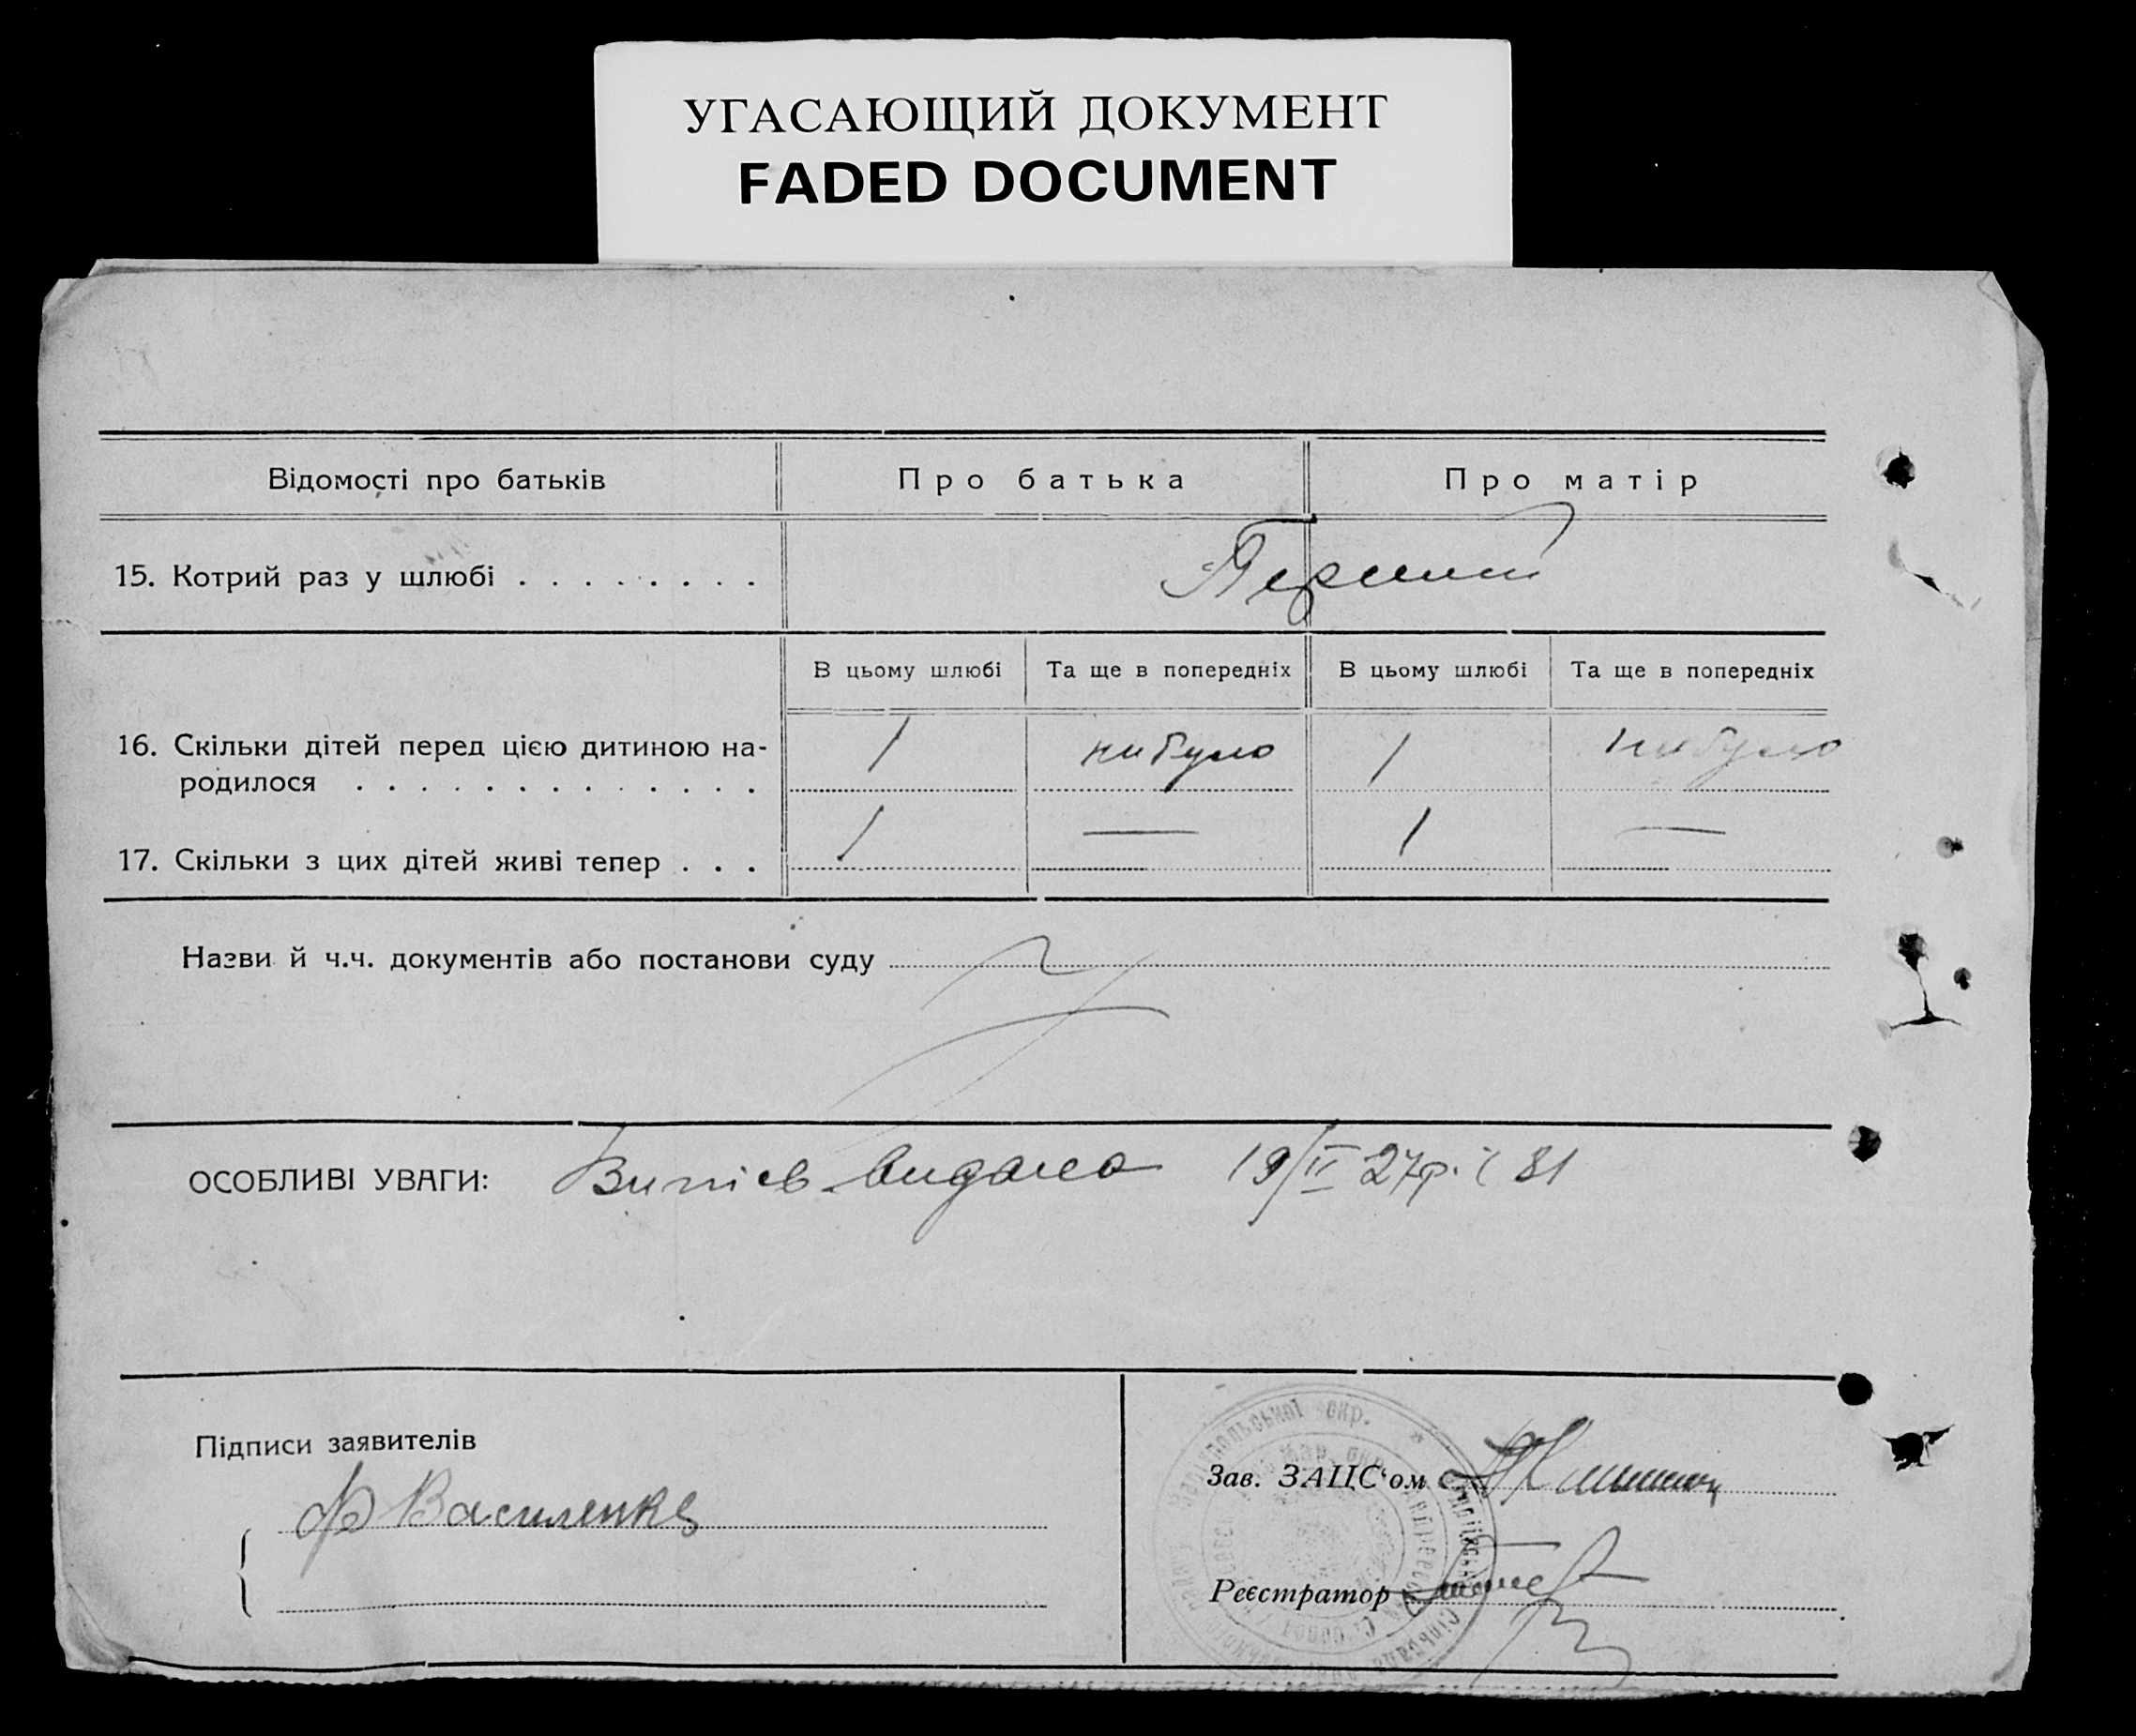 УГАСАЮЩИЙ ДОКУМЕНТ
FADED DOCUMENT
Відомості про батьків Про батька Про матір
15. Котрий раз у шлюбі . . . . . . . . Перший
В цьому шлюбі Та ще в попередніх В цьому шлюбі Та ще в попередніх
16. Скільки дітей перед цією дитиною на-
родилося . . . . . . . . . . . . . 1 не було 1 не було
17. Скільки з цих дітей живі тепер . . . 1 — 1 —
Назви й ч.ч. документів або постанови суду
ОСОБЛИВІ УВАГИ: Випис видано 19/II 27р. 81
Підписи заявителів
Ф Василенко
Зав. ЗАЦС‘ом
Реєстратор